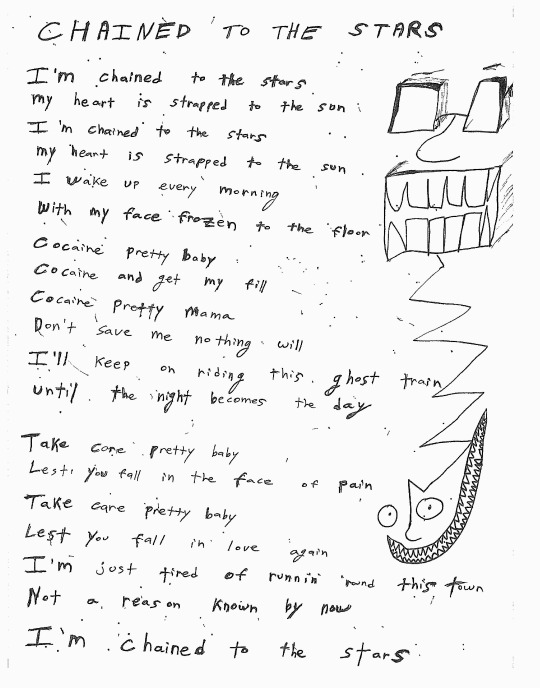 CHAINED TO THE STARS
I'm chained to the stars
my heart is strapped to the sun
I'm chained to the stars
my heart is strapped to the sun
I wake up every morning
With my face frozen to the floor
Cocaine pretty baby
Cocaine and get my fill
Cocaine Pretty Mama
Don't save me nothing will
I'll keep on riding this ghost train
until the night becomes the day
Take care pretty baby
Lest you fall in the face of pain
Take care pretty baby
Lest you fall in love again
I'm just tired of runnin' 'round this town
Not a reason known by now
I'm chained to the stars